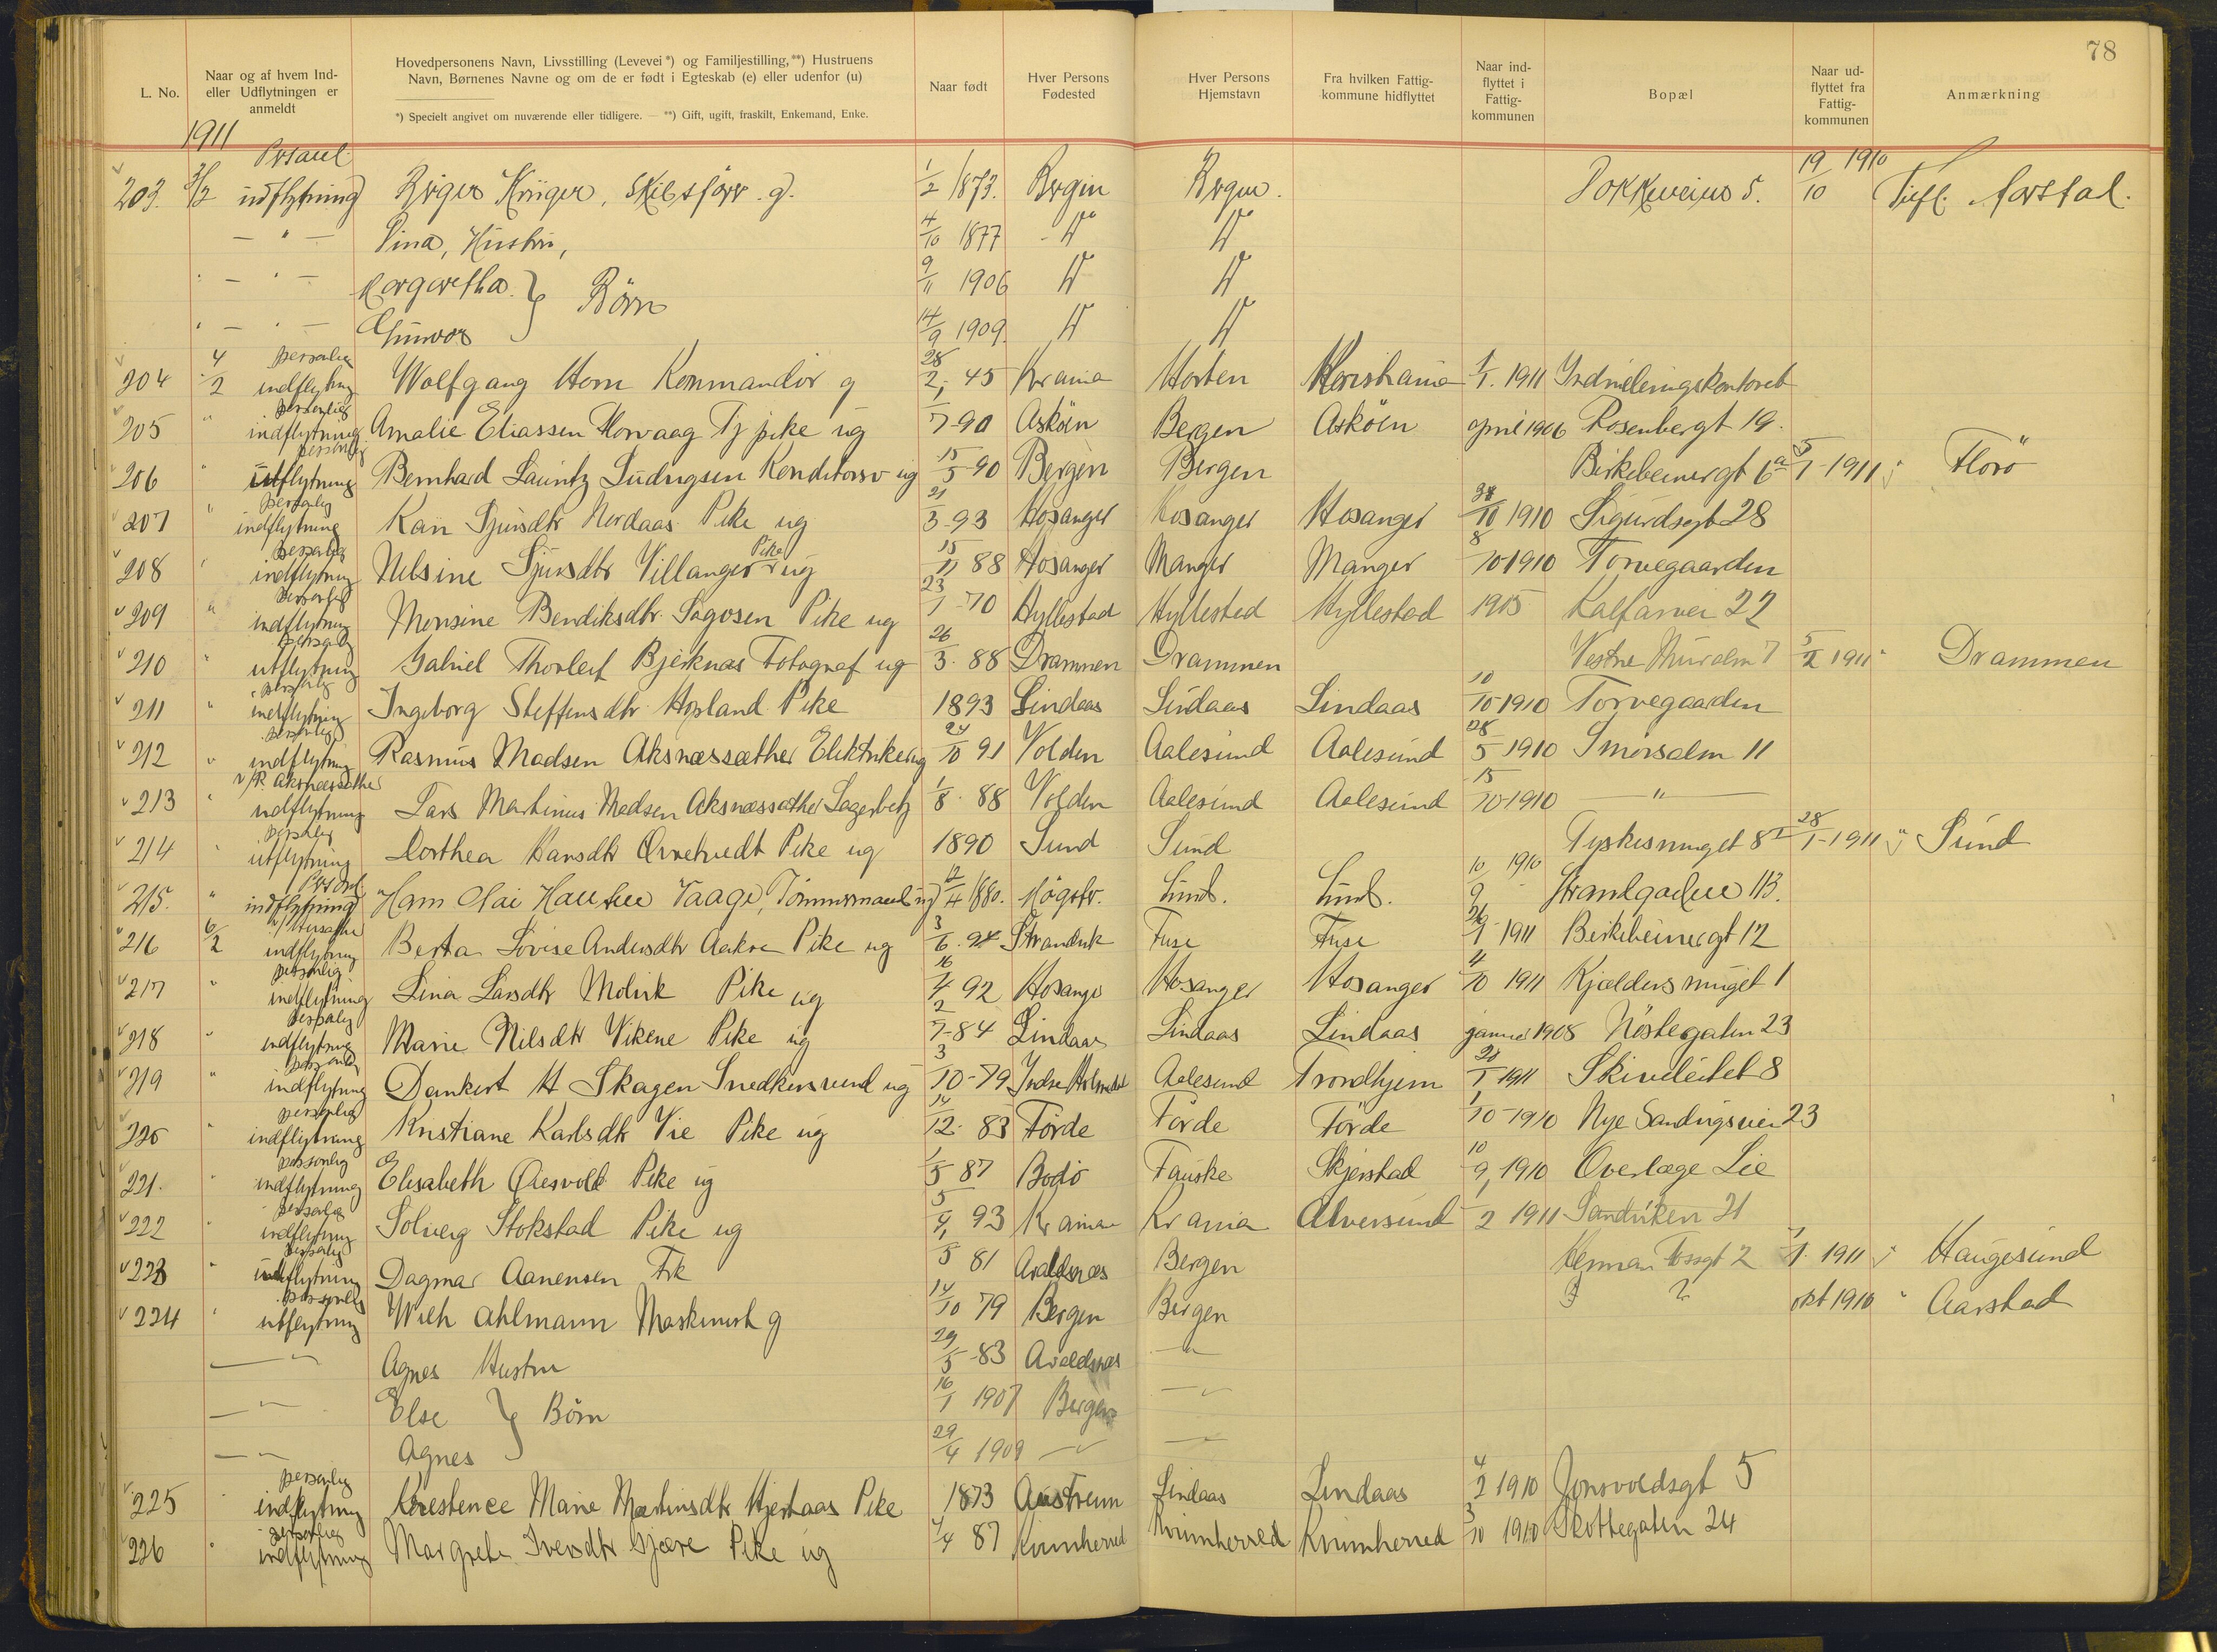 78
L. No.
Naar og af hvem Ind- eller Udflytningen er anmeldt
Hovedpersonens Navn, Livsstilling (Levevei*) og Familjestilling,**) Hustruens Navn, Børnenes Navne og om de er født i Egteskab (e) eller udenfor (u)
*) Specielt angivet om nuværende eller tidligere. — **) Gift, ugift, fraskilt, Enkemand, Enke.
Naar født
Hver Persons Fødested
Hver Persons Hjemstavn
Fra hvilken Fattig-kommune hidflyttet
Naar ind-flyttet i Fattig-kommunen
Bopæl
Naar ud-flyttet fra Fattig-kommunen
Anmærkning
1911
203. 3/2 indflytning Birger Krüger, Skibsförer g. 1/2 1873. Bergen Bergen. Dokkeveien 5. 19/10 1910 Aarstad.
— " — Lina, Hustru, 4/10 1877
Margaretha } Börn 9/11 1906
Gunvor 14/9 1909
204 4/2 personlig indflytning Wolfgang Horn Kommandör g 28/2 45 Krania Horten Kristiania 1/1 1911 Indrulleringskontoret
205 " personlig indflytning Amalie Eliassen Horvaag Tj pike ug 7 90 Asköen Bergen Asköen april 1906 Rosenbergt 19.
206 " personlig utflytning Bernhard Lauritz Ludvigsen Konditorsv ug 15/5 90 Bergen Bergen Birkebeinergt 6a 5/1 1911 Florö
207 " personlig indflytning Kari Sjursdtr Nordaas Pike ug 21/3 93 Hosanger Hosanger Hosanger 28/10 1910 Sigurdsgt 28
208 " personlig indflytning Nilsine Sjursdtr Villanger Pike ug 15/11 88 Hosanger Manger Manger 8/10 1910 Torvegaarden
209 " personlig indflytning Monsine Bendiksdtr Sagosen Pike ug 23/1 70 Hyllestad Hyllestad Hyllestad 1905 Kalfarvei 22
210 " personlig utflytning Gabriel Thorleif Bjerknas Fotograf ug 26/3 88 Drammen Drammen Vestre Muralm 7 5/2 1911 " Drammen
211 " personlig indflytning Ingeborg Steffensdtr Hopland Pike 1893 Lindaas Lindaas Lindaas 10/10 1910 Torvegaarden
212 " personlig indflytning Rasmus Madsen Aksnessæther Elektriker ug 24/10 91 Volden Aalesund Aalesund 28/5 1910 Smörsalm 11
213 " v/R. Aksnessæther indflytning Lars Martinus Madsen Aksnessæther Lagerbetj 1/8 88 Volden Aalesund Aalesund 15/10 1910 — " —
214 " personlig utflytning Dorthea Hansdtr Ørretvedt Pike ug 1890 Sund Sund Tyskesmuget 8 28/1 1911 " Sund
215. " indflytning Hans Olai Hansen Vaage, Tömmermand ug 12/4 1880. Møgster. Sund. Sund. 10/9 1910 Strandgaden 113.
216 6/2 indflytning Berta Lovise Andersdtr Aakre Pike ug 3/6 94 Strandvik Fuse Fuse 1911 Birkebeinergt 12
217 " personlig indflytning Lina Larsdtr Molvik Pike ug 16/4 92 Hosanger Hosanger Hosanger 4/10 1911 Kjælders muget 1
218 " personlig indflytning Marie Nilsdtr Vikene Pike ug 2/7 84 Lindaas Lindaas Lindaas januar 1908 Nöstegaten 23
219 " personlig indflytning Dankert H Skagen Snedkersvend ug 3/10 79 Indre Holmedal Aalesund Trondhjem 28/1 1911 Skivebakken 8
220 " personlig indflytning Kristiane Karlsdtr Vie Pike ug 14/12 83 Förde Förde Förde 1/10 1910 Nye Sandvigsvei 23
221. " personlig indflytning Elisabeth Øiesvold Pike ug 1/5 87 Bodö Fauske Skjerstad 10/9 1910 Overlæge Lie
222 " personlig indflytning Solveig Stokstad Pike ug 5/4 93 Krania Krania Alversund 1/2 1911 Sandviken 21
223 " personlig utflytning Dagmar Aanensen Frk 5 81 Avaldsnes Bergen Herman Fossgt 2 1/1 1911 " Haugesund
224 " personlig utflytning Wilh Ahlmann Maskinist g 14/10 79 Bergen Bergen okt 1910 " Aarstad
— " — Agnes Hustru 29/5 83 Avaldsnes — " —
— " — Else } Börn 16/1 1907 Bergen — " —
— " — Agnes 29/4 1909 — " — — " —
225 " personlig indflytning Krestence Marie Martinsdtr Hjertaas Pike 1873 Austreim Lindaas Lindaas 4/2 1910 Jonsvoldsgt 5
226 " personlig indflytning Margrete Iversdtr Gjære Pike ug 4/4 87 Kvinnherred Kvinnherred Kvinnherred 3/10 1910 Skottegaten 24